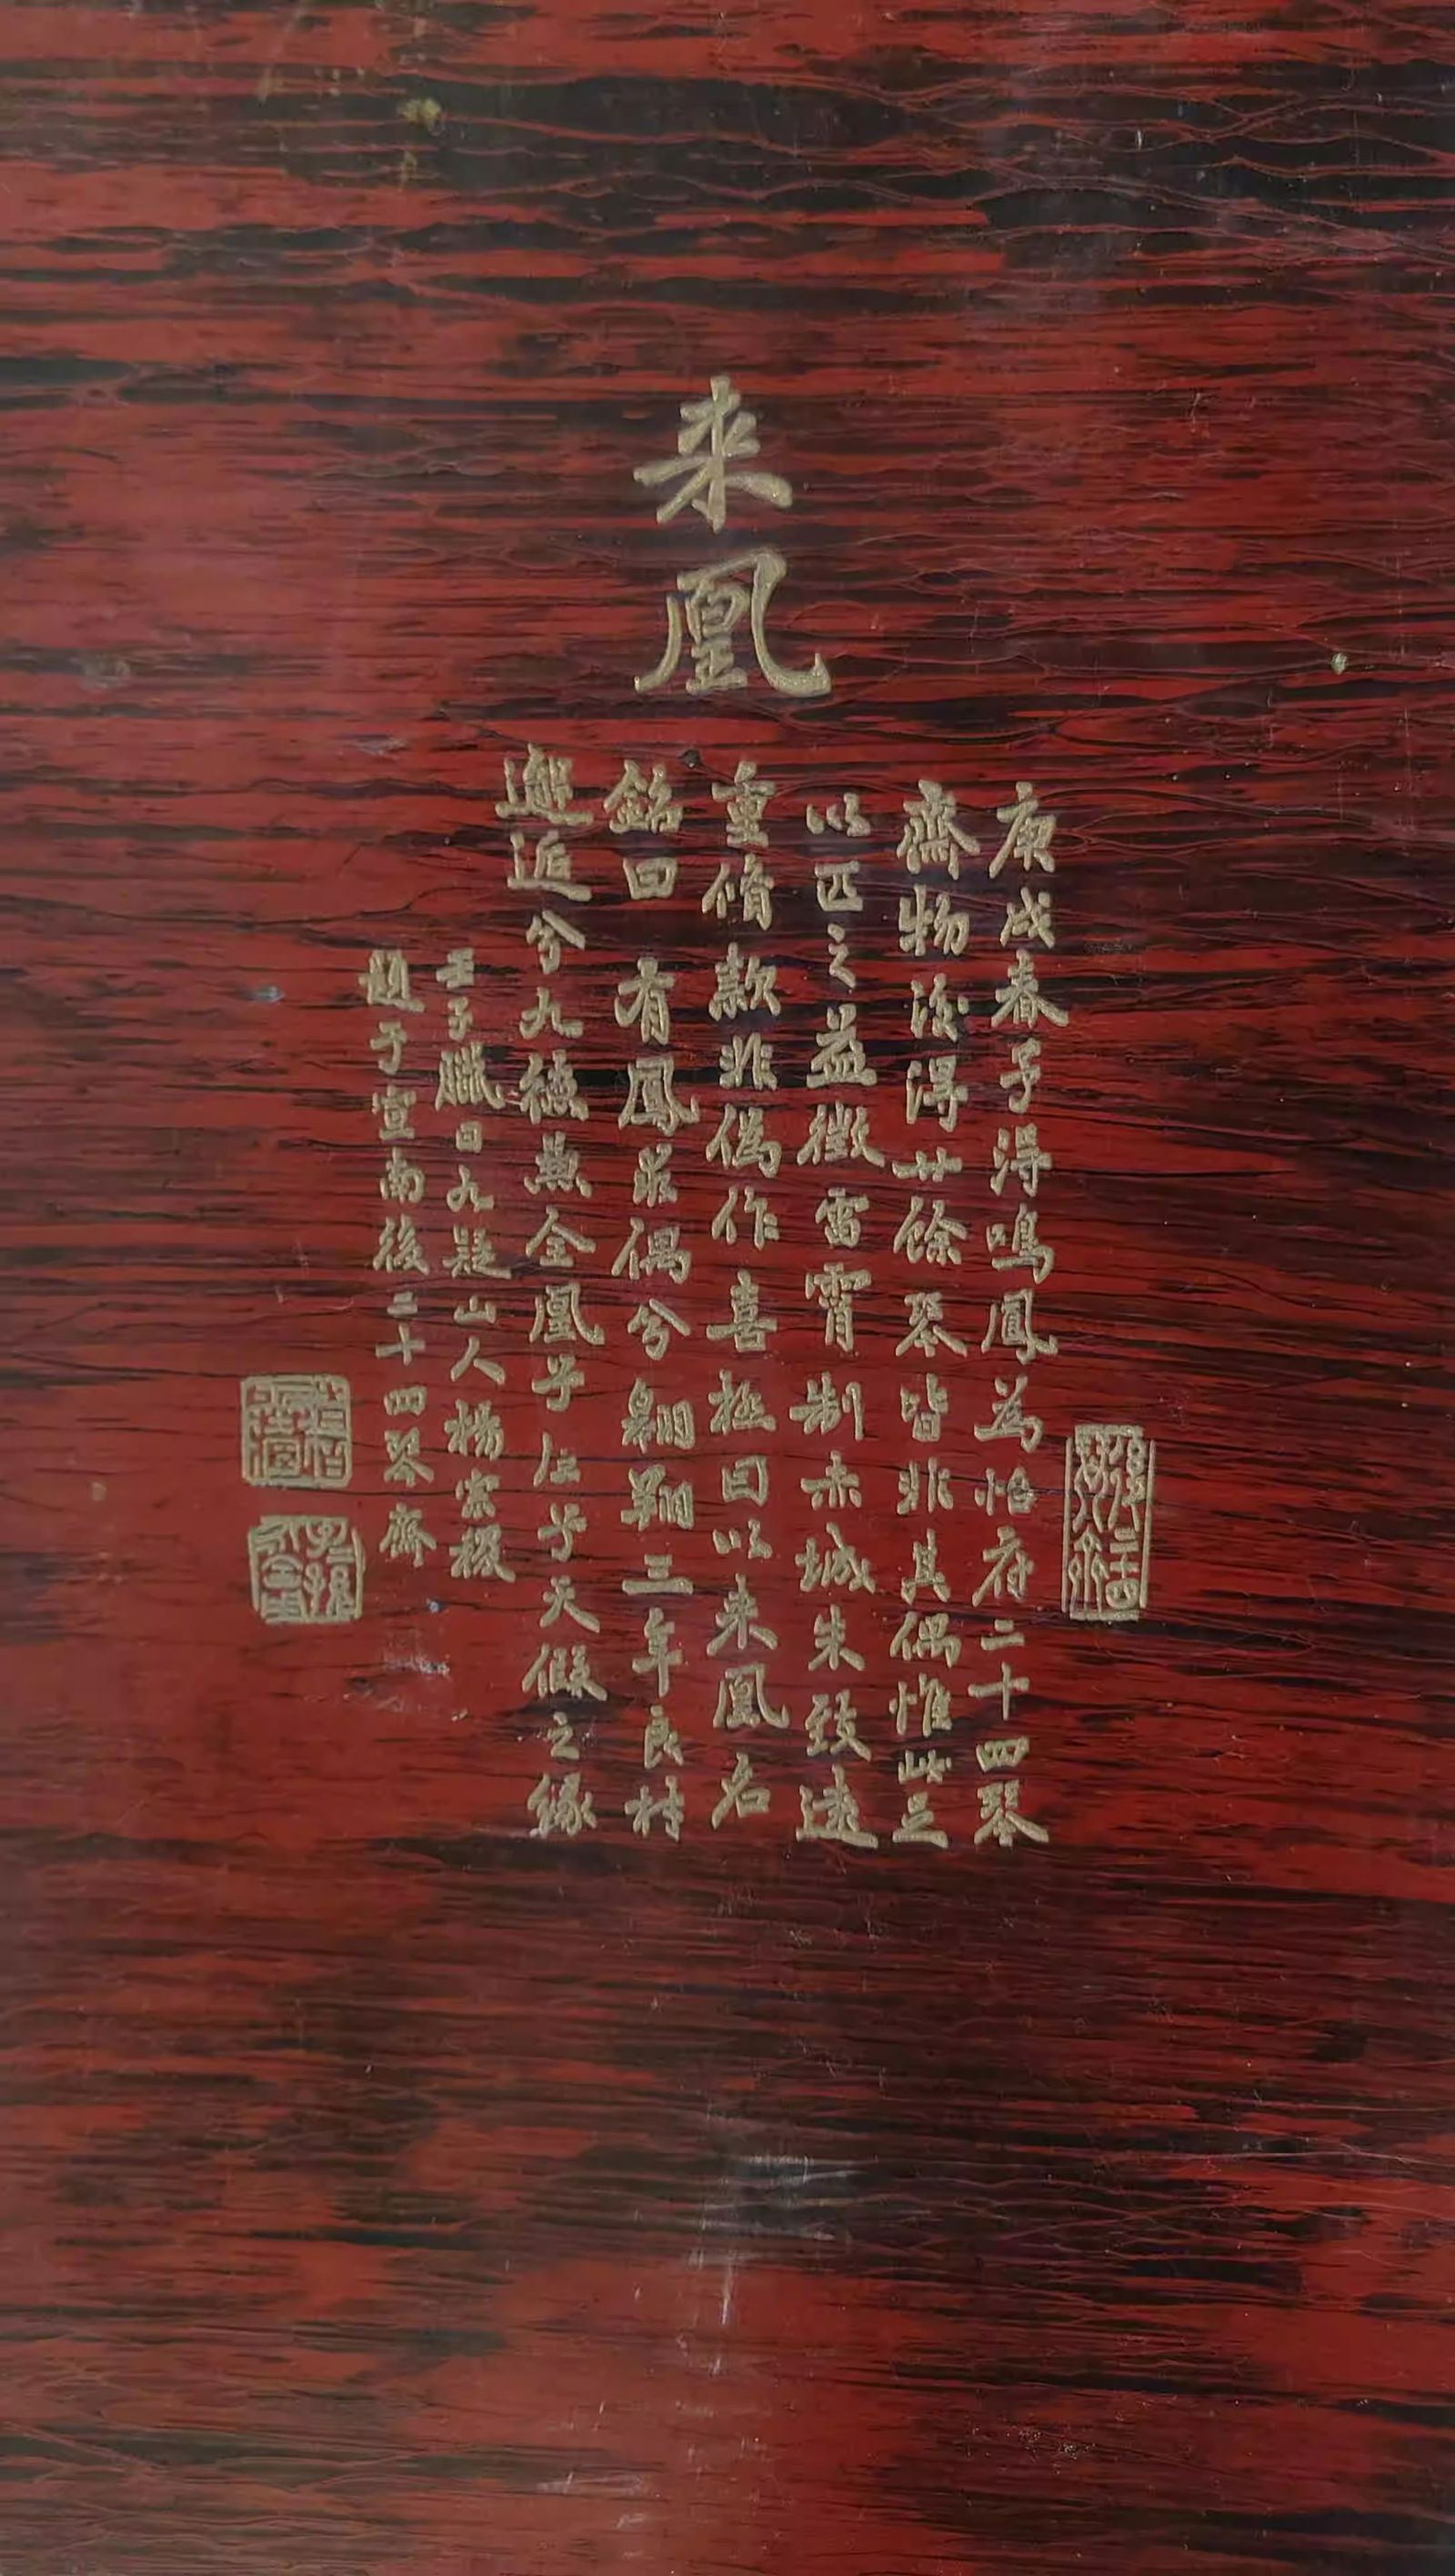 来凰
庚戌春予得鳴鳳為怡府二十四琴
齋物後得廿餘琴皆非其偶惟此足
以匹之益徵雷霄制赤城朱致遠
重脩款非偽作喜極因以来凰名
銘曰 有鳳求偶兮翱翔三年良材
邂逅兮九德兼全凰予汪兮天假之緣
壬子臘日九疑山人楊宗稷
題于宣南後二十四琴齋